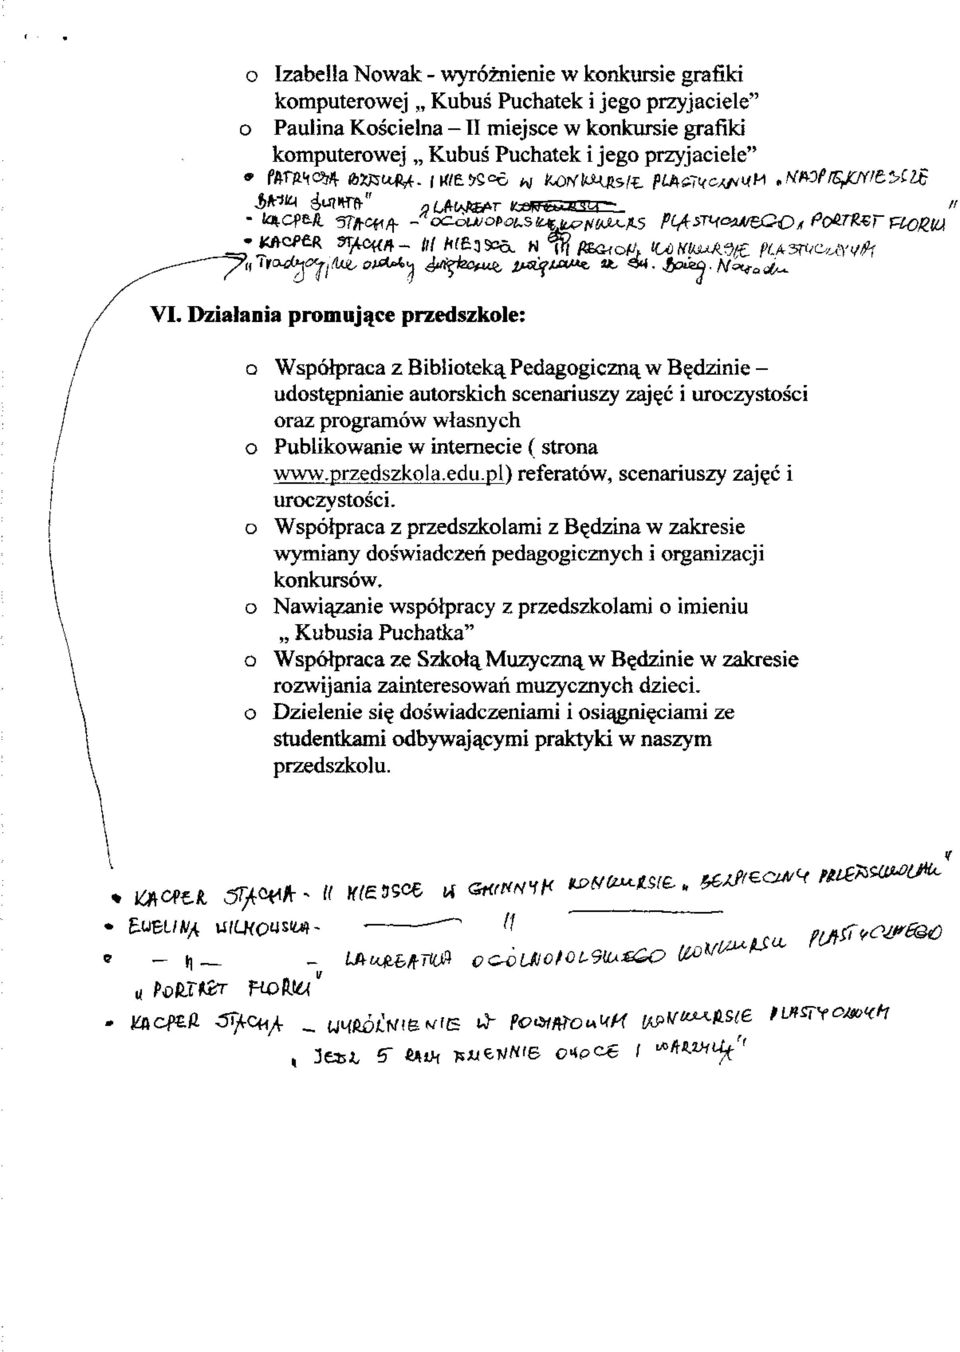 o Izabella Nowak - wyróżnienie w konkursie grafiki
komputerowej „ Kubuś Puchatek i jego przyjaciele”
o Paulina Kościelna – II miejsce w konkursie grafiki
komputerowej „ Kubuś Puchatek i jego przyjaciele”
• PATRYCJA - I MIEJSCE W KONKURSIE PLASTYCZNYM „NAJPIĘKNIEJSZE
BAJKI ŚWIATA"
- KACPER STACHA - LAUREAT OGÓLNOPOLSKIEGO KONKURS PLASTYCZNEGO „ PORTRET FLORKI"
• KACPER STACHA - III MIEJSCE W KONKURSIE PLASTYCZNYM
"Tradycyjne ozdoby świąteczne związane ze Św. Bożeg. Narodz.
VI. Działania promujące przedszkole:
o Współpraca z Biblioteką Pedagogiczną w Będzinie –
udostępnianie autorskich scenariuszy zajęć i uroczystości
oraz programów własnych
o Publikowanie w internecie ( strona
www.przedszkola.edu.pl) referatów, scenariuszy zajęć i
uroczystości.
o Współpraca z przedszkolami z Będzina w zakresie
wymiany doświadczeń pedagogicznych i organizacji
konkursów.
o Nawiązanie współpracy z przedszkolami o imieniu
„ Kubusia Puchatka”
o Współpraca ze Szkołą Muzyczną w Będzinie w zakresie
rozwijania zainteresowań muzycznych dzieci.
o Dzielenie się doświadczeniami i osiągnięciami ze
studentkami odbywającymi praktyki w naszym
przedszkolu.
• KACPER STACHA - II MIEJSCE W GMINNYM KONKURSIE „ BEZPIECZNY PRZEDSZKOLAK"
• EWELINA WILKOWSKA - — 11 —
• — 11 — - LAUREATKA OGÓLNOPOLSKIEGO KONKURSU PLASTYCZNEGO
„ PORTRET FLORKI"
• KACPER STACHA - WYRÓŻNIENIE W POWIATOWYM KONKURSIE PLASTYCZNYM
„ JEDZ 5 RAZY DZIENNIE OWOCE I WARZYWA"